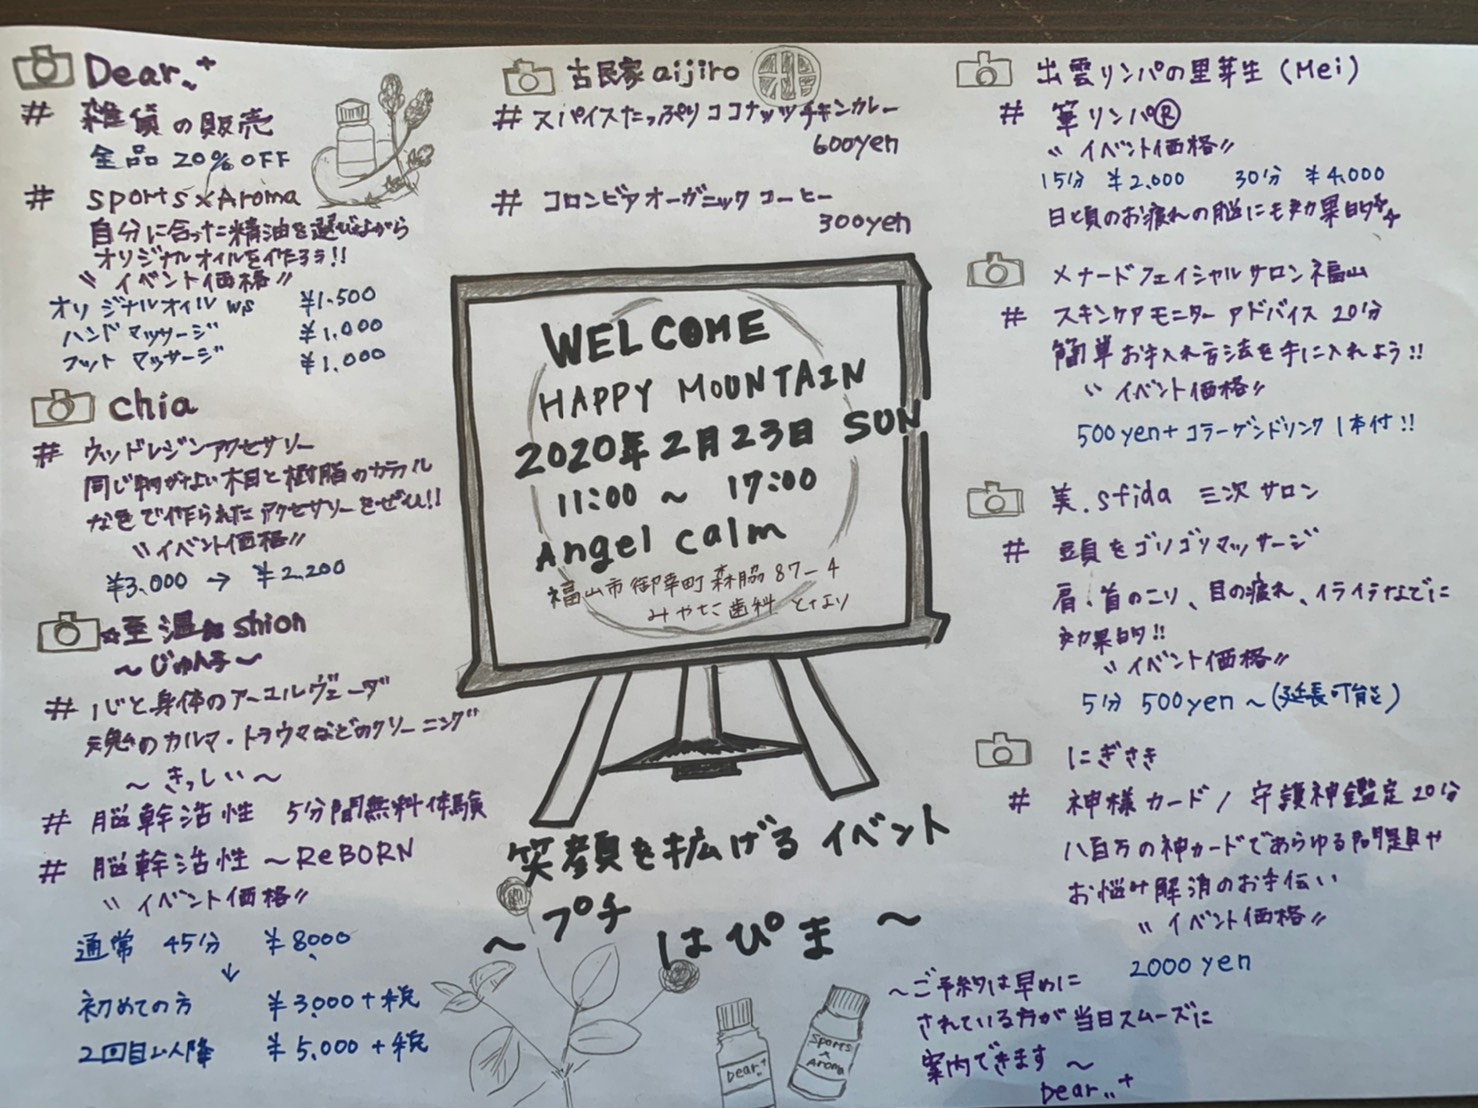 Dear..+
# 雑貨の販売
全品 20%OFF
# sports×Aroma
自分に合った精油を選びながら
オリジナルオイルを作ろう!!
〝イベント価格〟
オリジナルオイル ws ¥1.500
ハンドマッサージ ¥1.000
フットマッサージ ¥1.000
chia
# ウッドレジンアクセサリー
同じ柄がない木目と樹脂のカラフル
な色で作られたアクセサリーをぜひ!!
〝イベント価格〟
¥3.000 → ¥2.200
☆亜温☆shion
〜じゅん子〜
# 心と身体のアーユルヴェーダ
魂のカルマ・トラウマなどのクリーニング
〜きっしぃ〜
# 脳幹活性 5分間無料体験
# 脳幹活性 〜ReBORN
〝イベント価格〟
通常 45分 ¥8000
↓
初めての方 ¥3.000+税
2回目以降 ¥5.000+税
古民家aijiro
# スパイスたっぷりココナッツチキンカレー
600yen
# コロンビアオーガニックコーヒー
300yen
WELCOME
HAPPY MOUNTAIN
2020年2月23日 SUN
11:00 〜 17:00
Angel calm
福山市御幸町森脇87-4
みやたに歯科 となり
笑顔を拡げるイベント
〜プチ
はぴま〜
Dear..+
Sports
×
Aroma
出雲リンパの里芽生(Mei)
# 筆リンパ®
〝イベント価格〟
15分 ¥2.000 30分 ¥4.000
日頃のお疲れの脳にも効果的
メナードフェイシャルサロン福山
# スキンケアモニターアドバイス 20分
簡単お手入れ方法を手に入れよう!!
〝イベント価格〟
500yen+コラーゲンドリンク1本付!!
美.sfida 三次サロン
# 頭をゴリゴリマッサージ
肩・首のこり、目の疲れ、イライラなどに
効果的!!
〝イベント価格〟
5分 500yen〜(延長可能)
にぎさき
# 神様カード/守護神鑑定20分
八百万の神カードであらゆる問題や
お悩み解消のお手伝い
〝イベント価格〟
2000yen
〜ご予約は早めに
されている方が当日スムーズに
案内できます〜
Dear..+